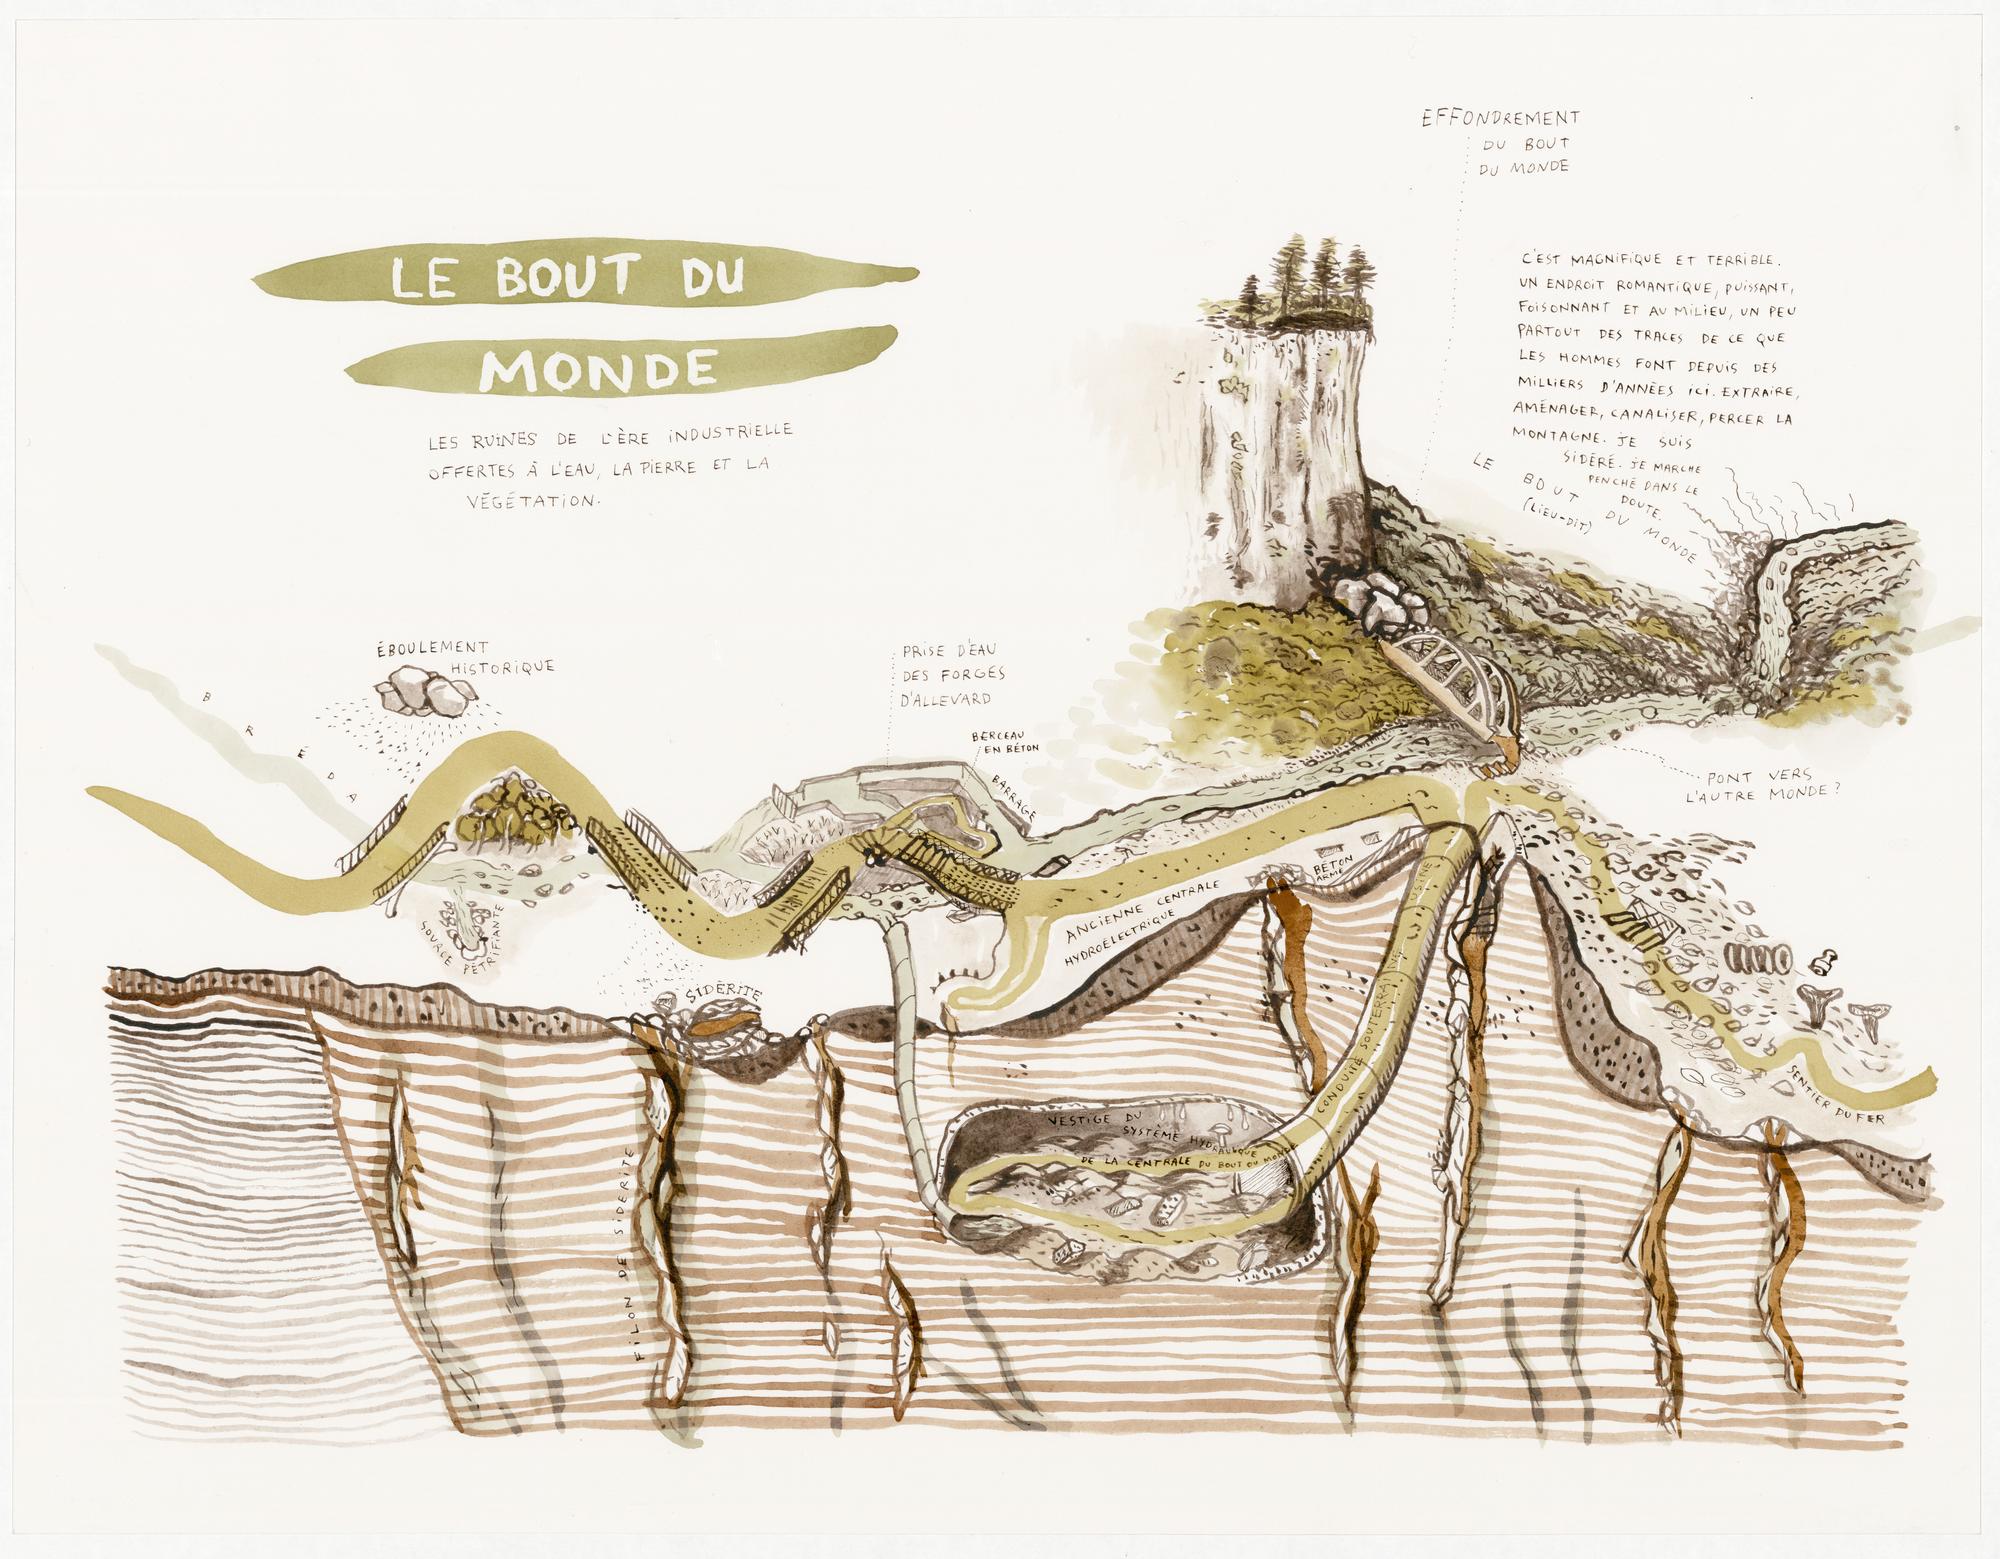 LE BOUT DU
MONDE
LES RUINES DE L'ÈRE INDUSTRIELLE
OFFERTES À L'EAU, LA PIERRE ET LA
VÉGÉTATION.
EFFONDREMENT
DU BOUT
DU MONDE
C'EST MAGNIFIQUE ET TERRIBLE.
UN ENDROIT ROMANTIQUE, PUISSANT,
FOISONNANT ET AU MILIEU, UN PEU
PARTOUT DES TRACES DE CE QUE
LES HOMMES FONT DEPUIS DES
MILLIERS D'ANNÉES ICI. EXTRAIRE,
AMÉNAGER, CANALISER, PERCER LA
MONTAGNE. JE SUIS
SIDÉRÉ. JE MARCHE
PENCHÉ DANS LE
DOUTE.
LE BOUT DU MONDE
(LIEU-DIT)
ÉBOULEMENT
HISTORIQUE
BRÉDA
PRISE D'EAU
DES FORGES
D'ALLEVARD
BERCEAU
EN BÉTON
BARRAGE
PONT VERS
L'AUTRE MONDE ?
BÉTON
ARMÉ
ANCIENNE CENTRALE
HYDROÉLECTRIQUE
SOURCE PÉTRIFIANTE
SIDÉRITE
CONDUITE SOUTERRAINE USINE
SENTIER DU FER
VESTIGE DU
SYSTÈME HYDRAULIQUE
DE LA CENTRALE DU BOUT DU MONDE
FILON DE SIDÉRITE